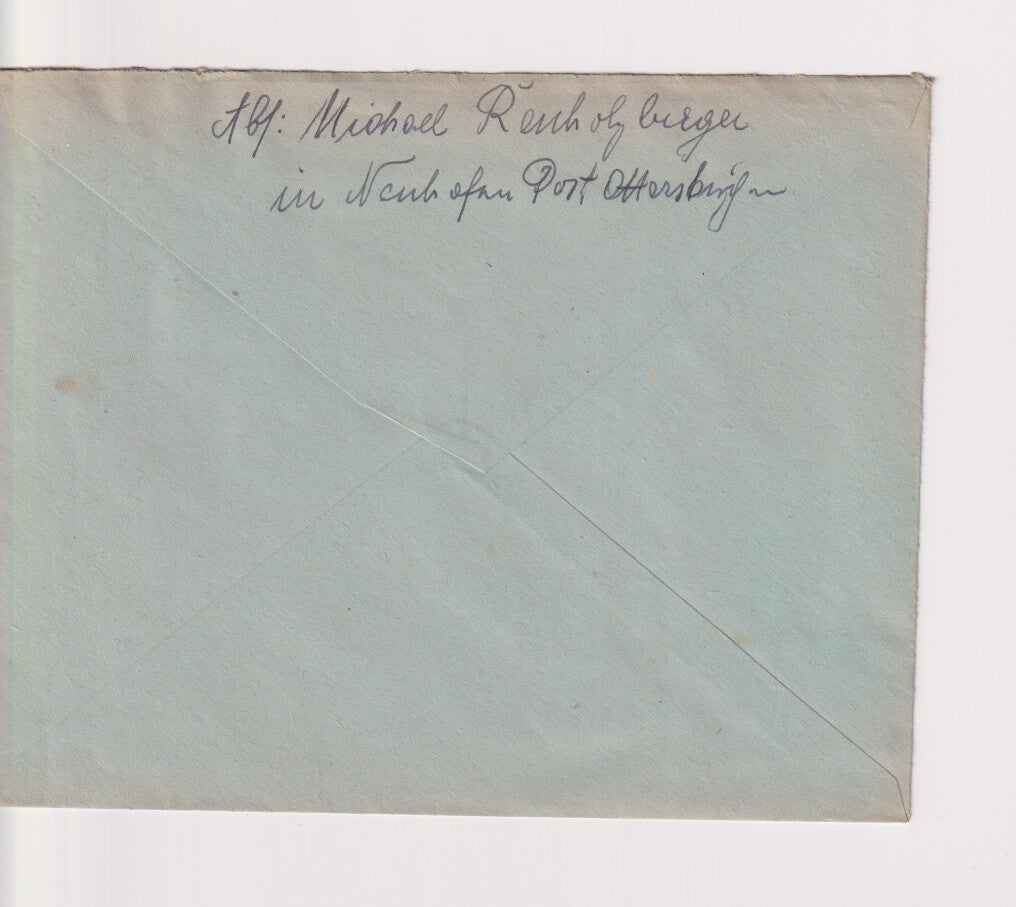 Abs: Michael Reuholzberger
in Neuhofen Post, Otterskirchen